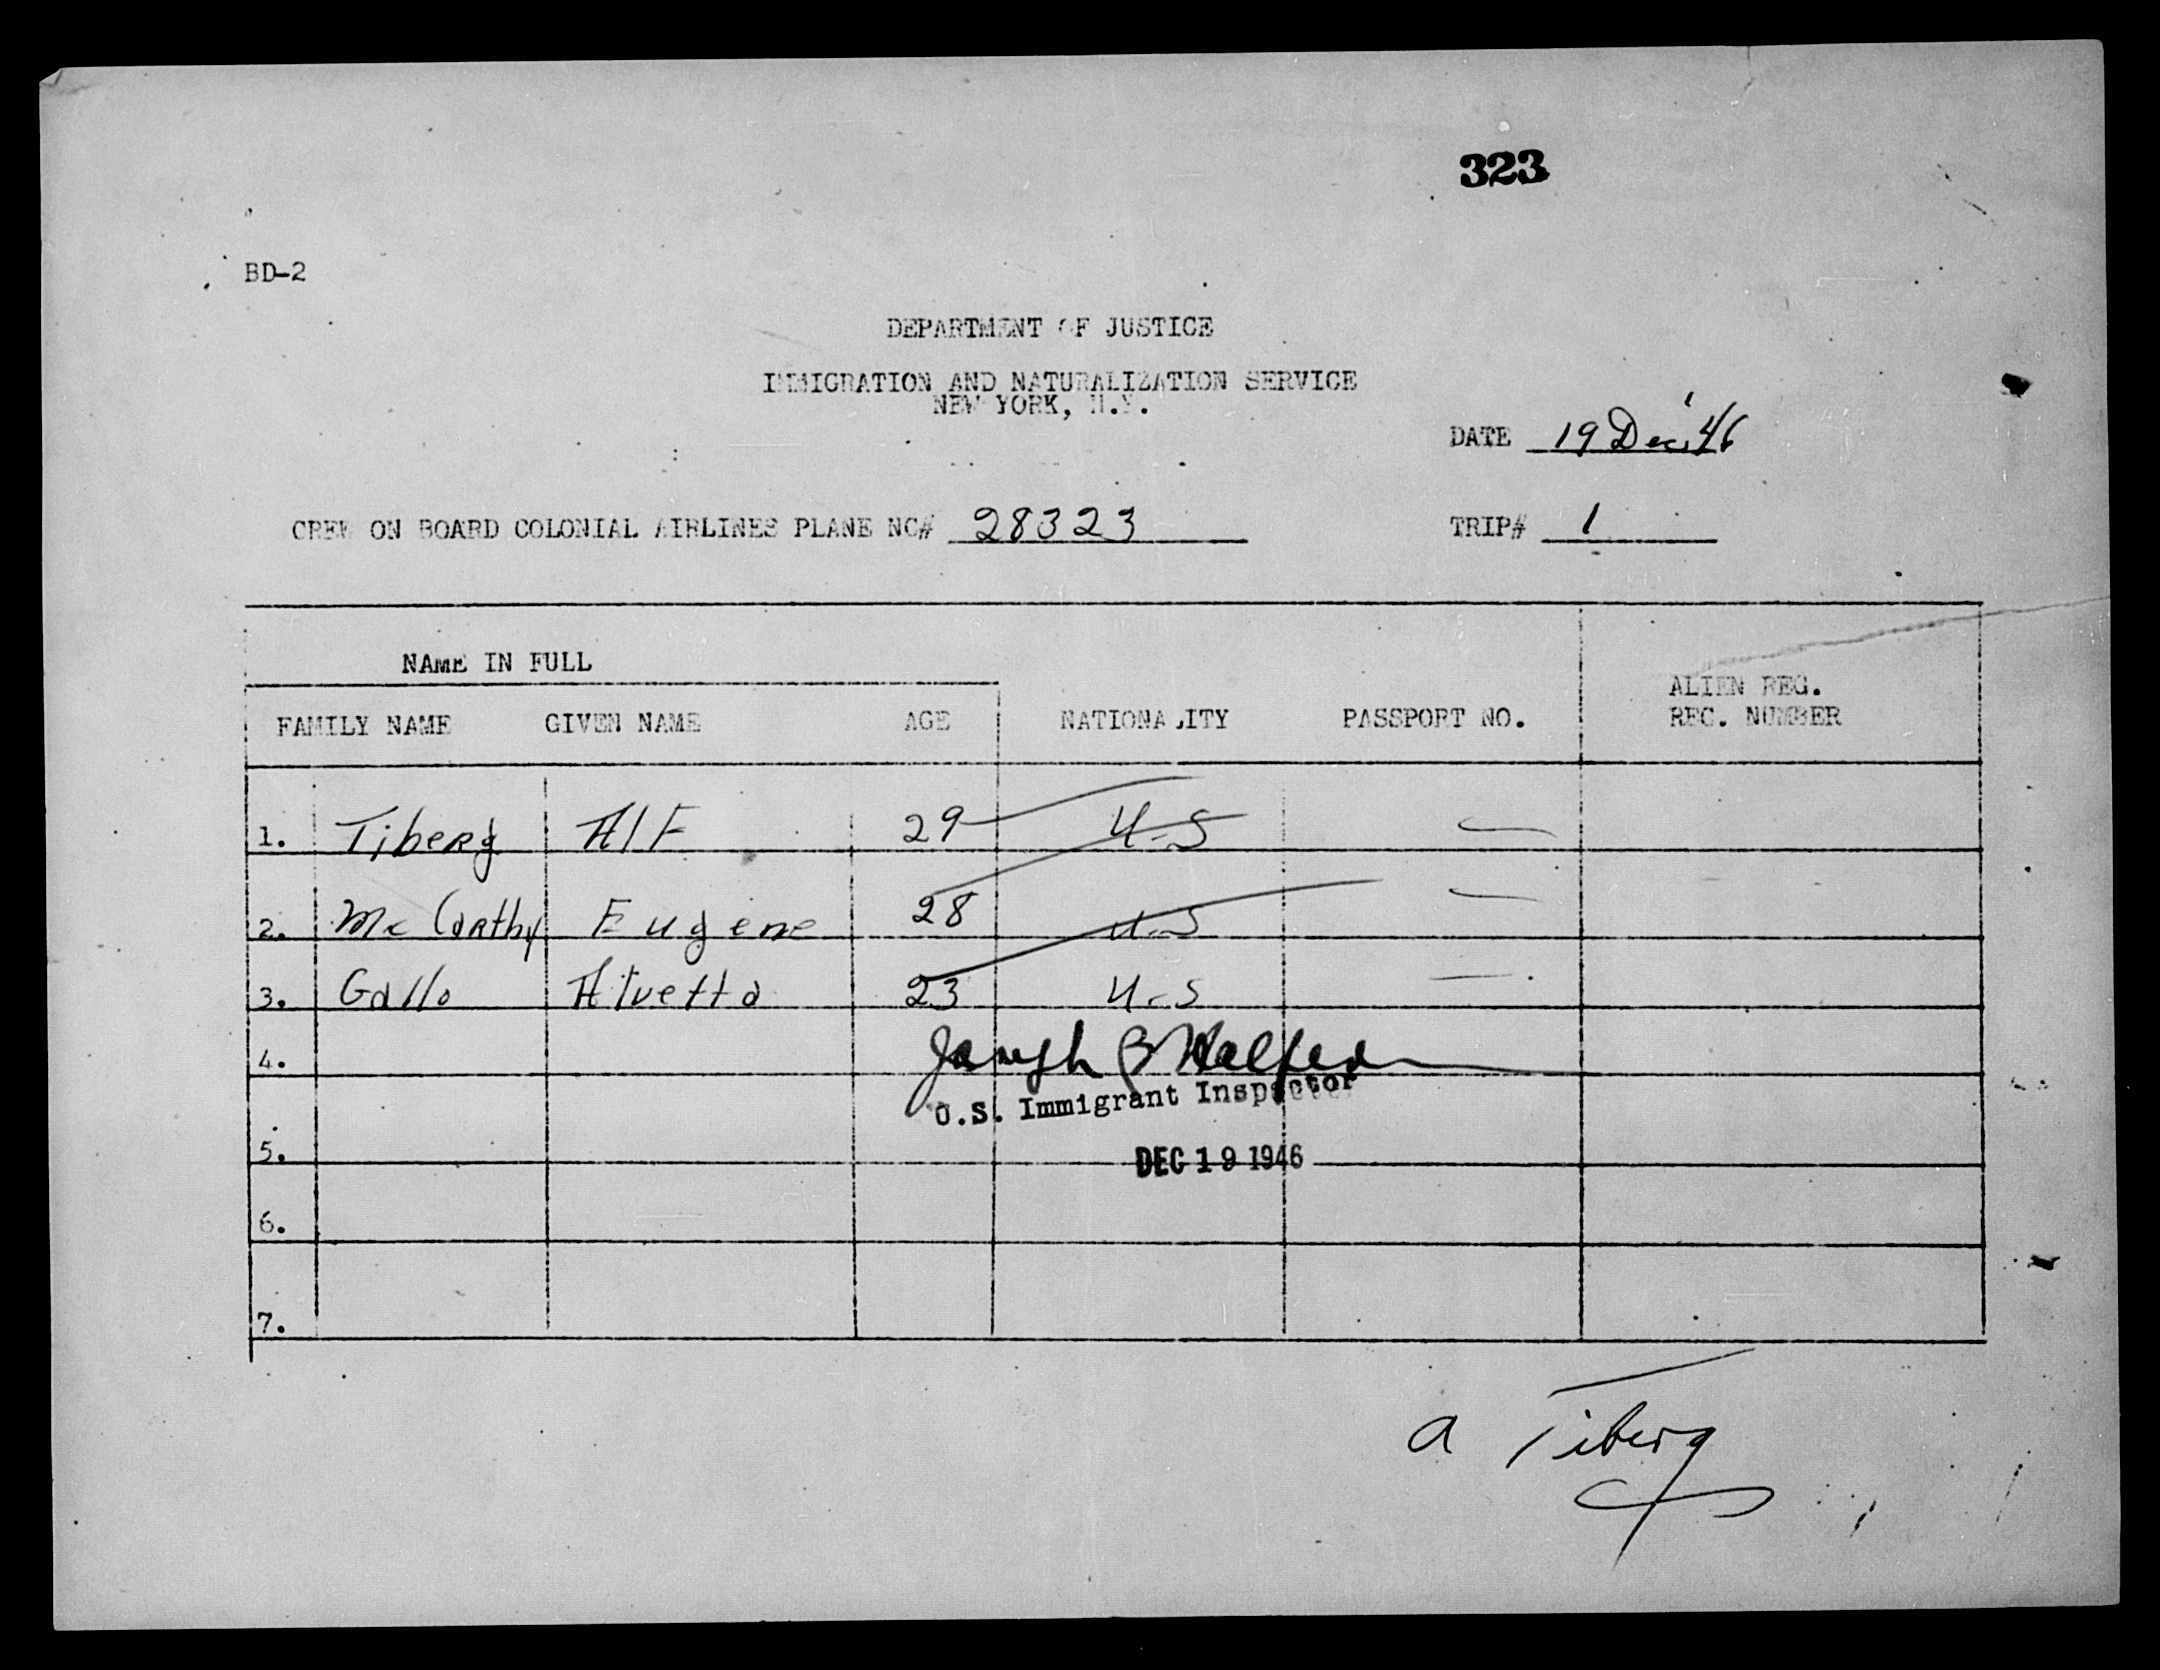 323
BD-2
DEPARTMENT OF JUSTICE
IMMIGRATION AND NATURALIZATION SERVICE
NEW YORK, N.Y.
DATE 19 Dec '46
CREW ON BOARD COLONIAL AIRLINES PLANE NC# 28323 TRIP# 1
NAME IN FULL
ALIEN REG.
FAMILY NAME GIVEN NAME AGE NATIONALITY PASSPORT NO. REC. NUMBER
1. Tiberg Alf 29 U-S —
2. McCarthy Eugene 28 U-S —
3. Gallo Alvetta 23 U-S —
4. Joseph B
U.S. Immigrant Inspector
5. DEC 19 1946
6.
7.
A Tiberg